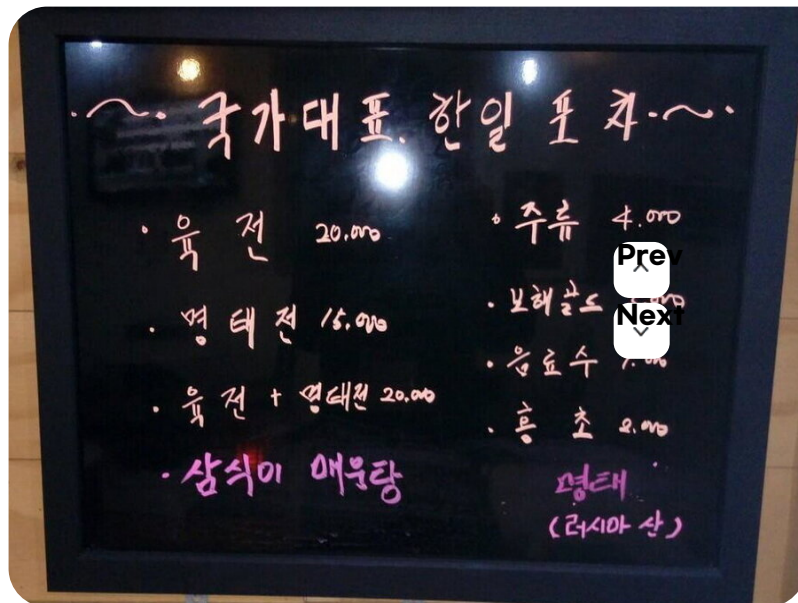 국가대표. 한일 포차
· 육전 20.000
· 명태전 15.000
· 육전 + 명태전 20.000
· 삼식이 매운탕
· 주류 4.000
Prev
· 보해골드
Next
· 음료수
· 홍초 2.000
명태
(러시아 산)